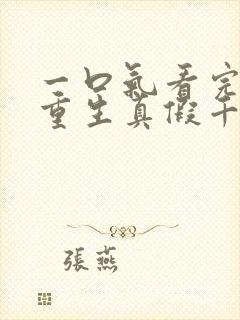 一口氣看完
重生真假千
張燕